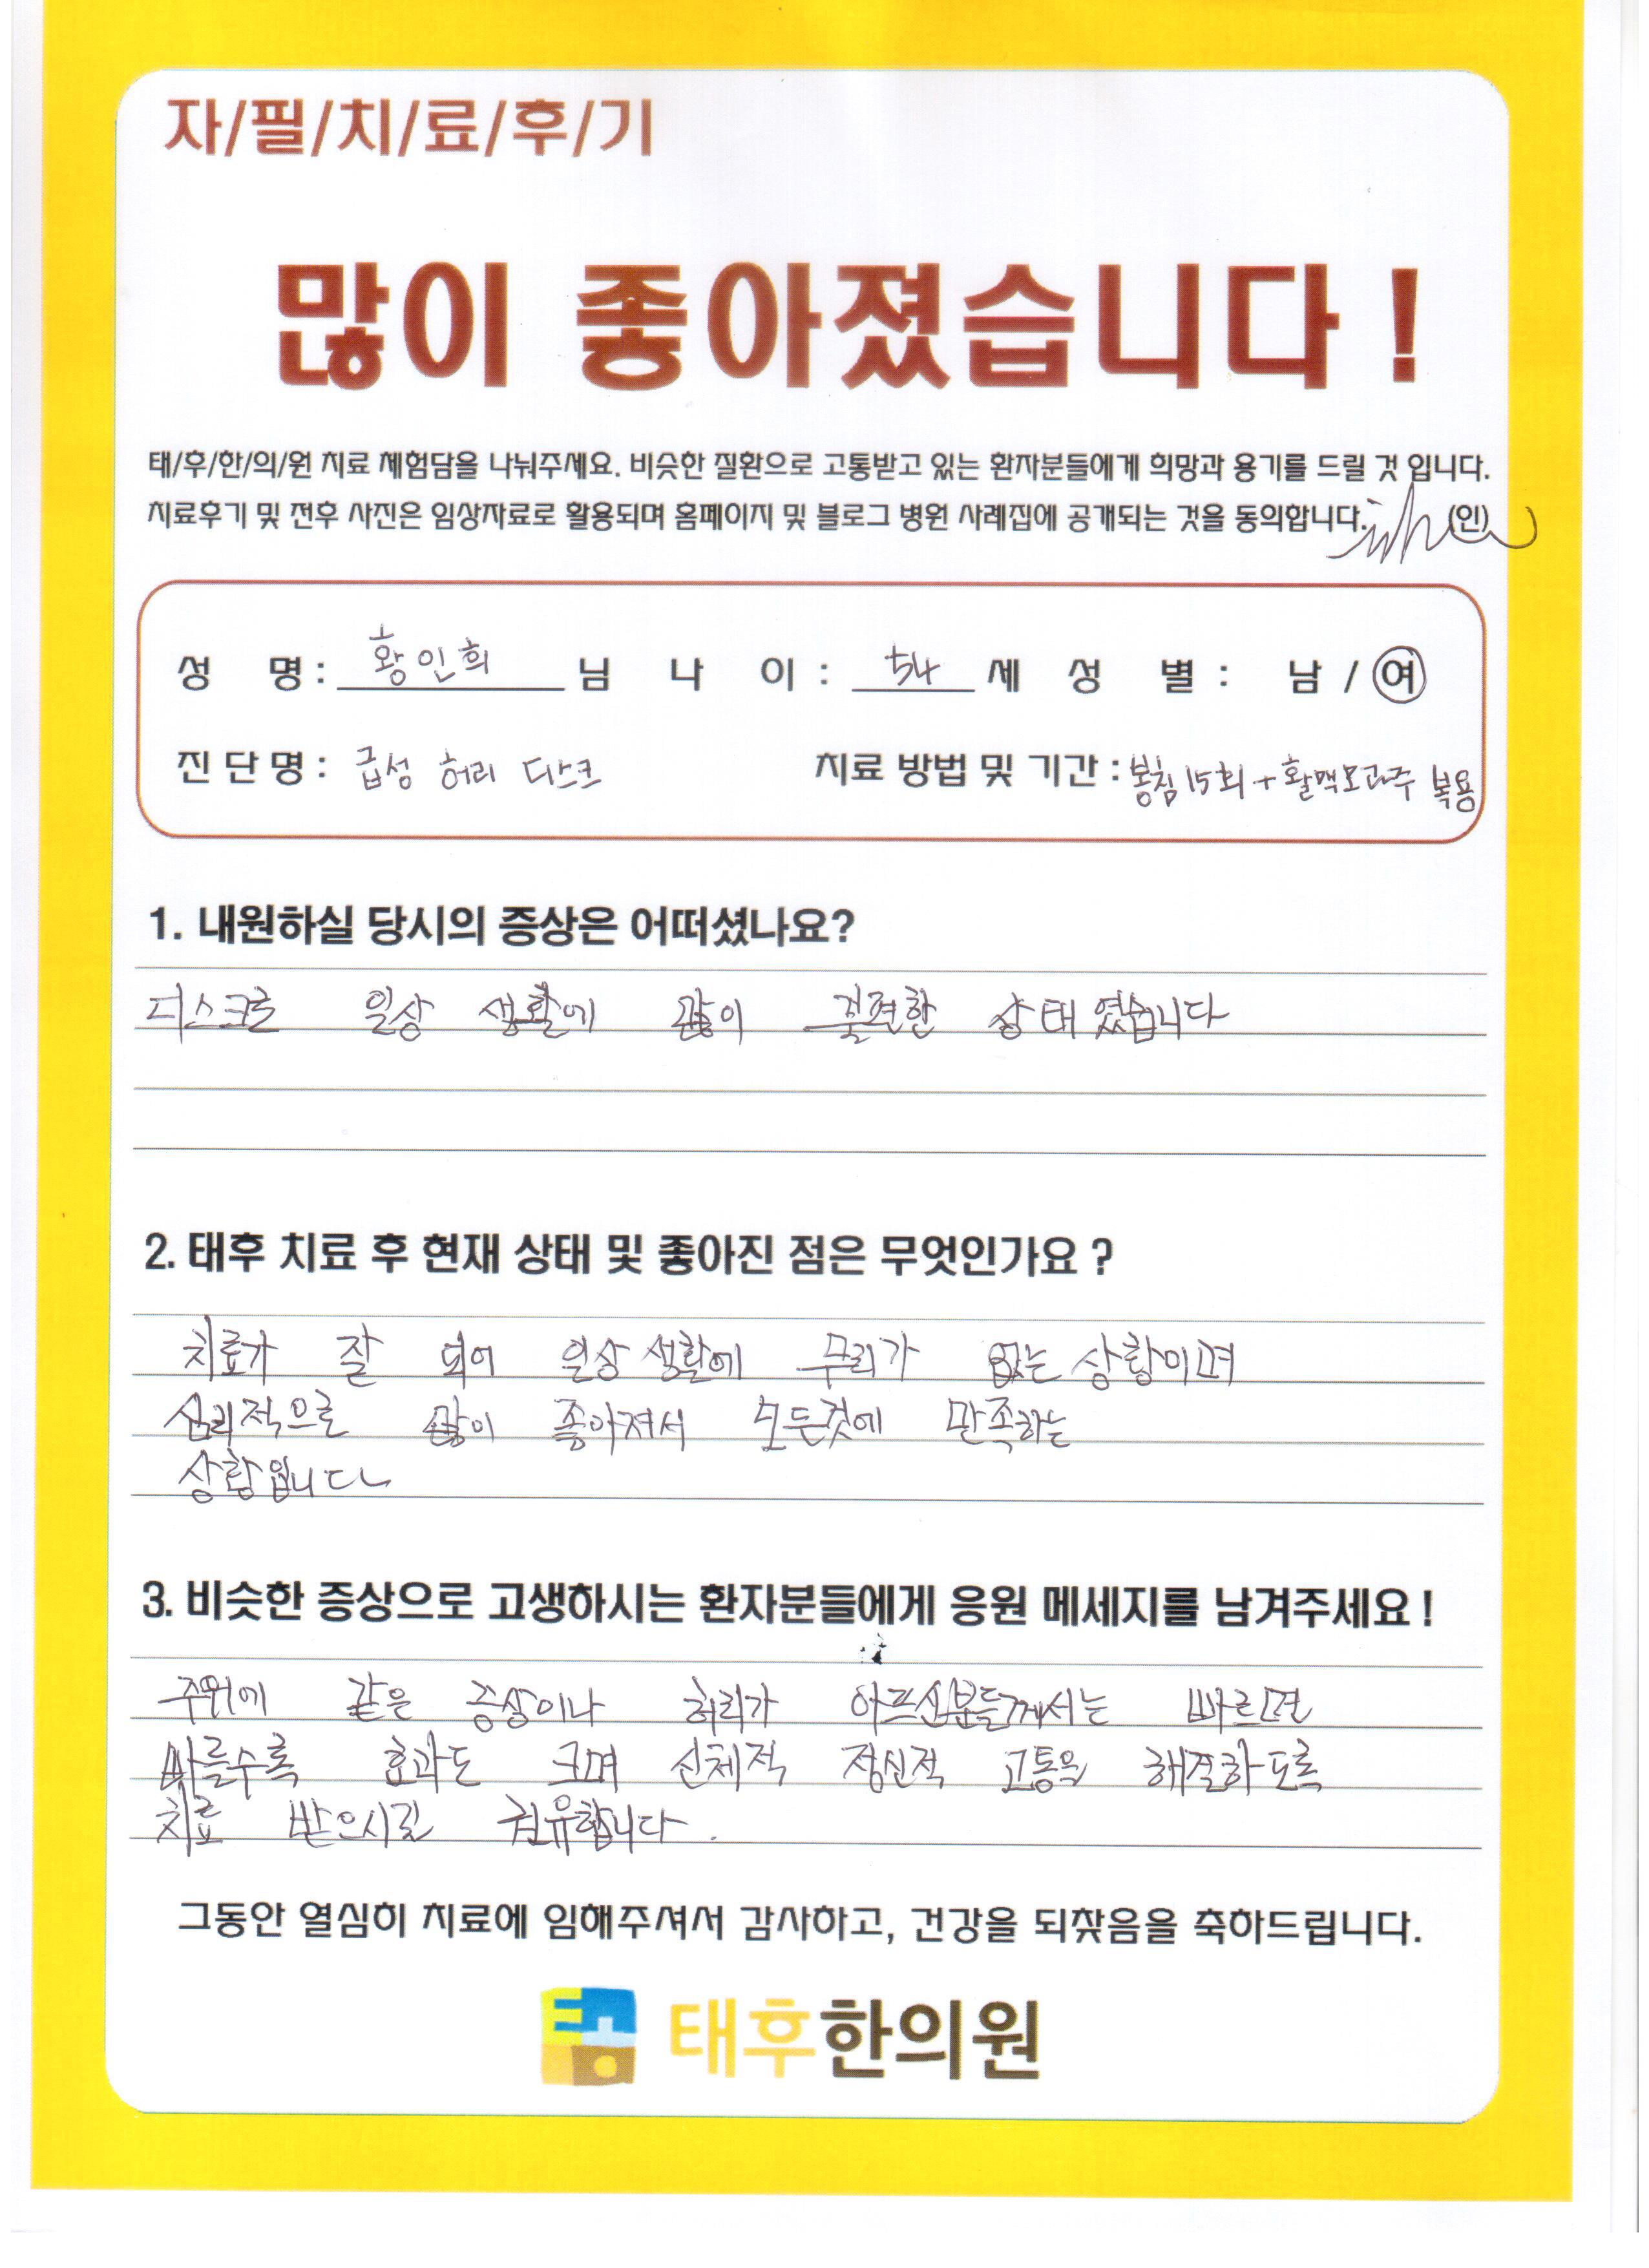 자/필/치/료/후/기
많이 좋아졌습니다 !
태/후/한/의/원 치료 체험담을 나눠주세요. 비슷한 질환으로 고통받고 있는 환자분들에게 희망과 용기를 드릴 것 입니다.
치료후기 및 전후 사진은 임상자료로 활용되며 홈페이지 및 블로그 병원 사례집에 공개되는 것을 동의합니다. (인)
성 명 : 황인희 님 나 이 : 54 세 성 별 : 남 / 여
진 단 명 : 급성 허리 디스크 치료 방법 및 기간 : 봉침 15회 + 활맥모과주 복용
1. 내원하실 당시의 증상은 어떠셨나요?
디스크로 일상 생활에 많이 불편한 상태 였습니다
2. 태후 치료 후 현재 상태 및 좋아진 점은 무엇인가요 ?
치료가 잘 되어 일상 생활에 무리가 없는 상황이며
심리적으로 많이 좋아져서 모든것에 만족하는
상황입니다
3. 비슷한 증상으로 고생하시는 환자분들에게 응원 메세지를 남겨주세요 !
주위에 같은 증상이나 허리가 아프신분들께서는 빠르면
빠를수록 효과도 크며 신체적 정신적 고통을 해결하도록
치료 받으시길 권유합니다.
그동안 열심히 치료에 임해주셔서 감사하고, 건강을 되찾음을 축하드립니다.
태후한의원